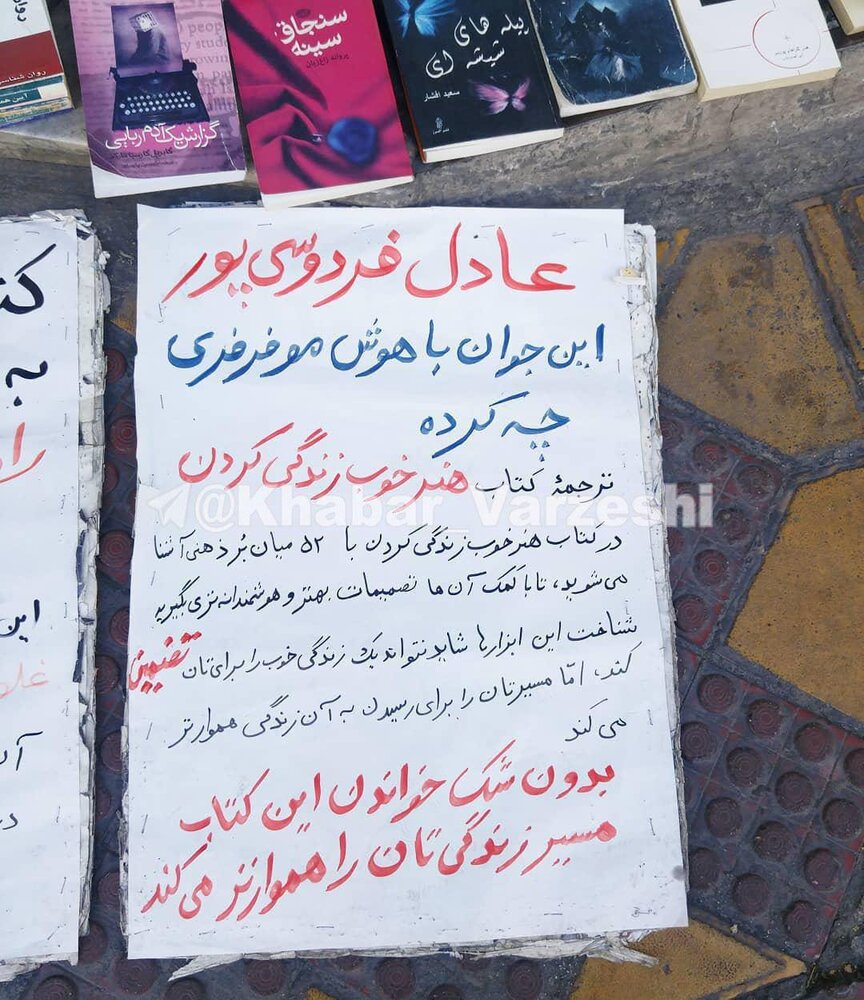 روان شناسی
گزارش یک آدم ربایی
گابریل گارسیا مارکز
سنجاق
سینه
پیله های
شیشه ای
سعید افشار
عادل فردوسی پور
این جوان با هوش مو فرفری
چه کرده
ترجمهٔ کتاب هنر خوب زندگی کردن
@Khabar_Varzeshi
در کتاب هنر خوب زندگی کردن با ۵۲ میان بُر ذهنی آشنا
می شوید، تا با کمک آن ها تصمیمات بهتر و هوشمندانه تری بگیرید
شناخت این ابزارها شاید نتواند یک زندگی خوب را برای تان تضمین
کند، امّا مسیرتان را برای رسیدن به آن زندگی هموارتر
می کند
بدون شک خواندن این کتاب
مسیر زندگی تان را هموارتر می کند
به
این